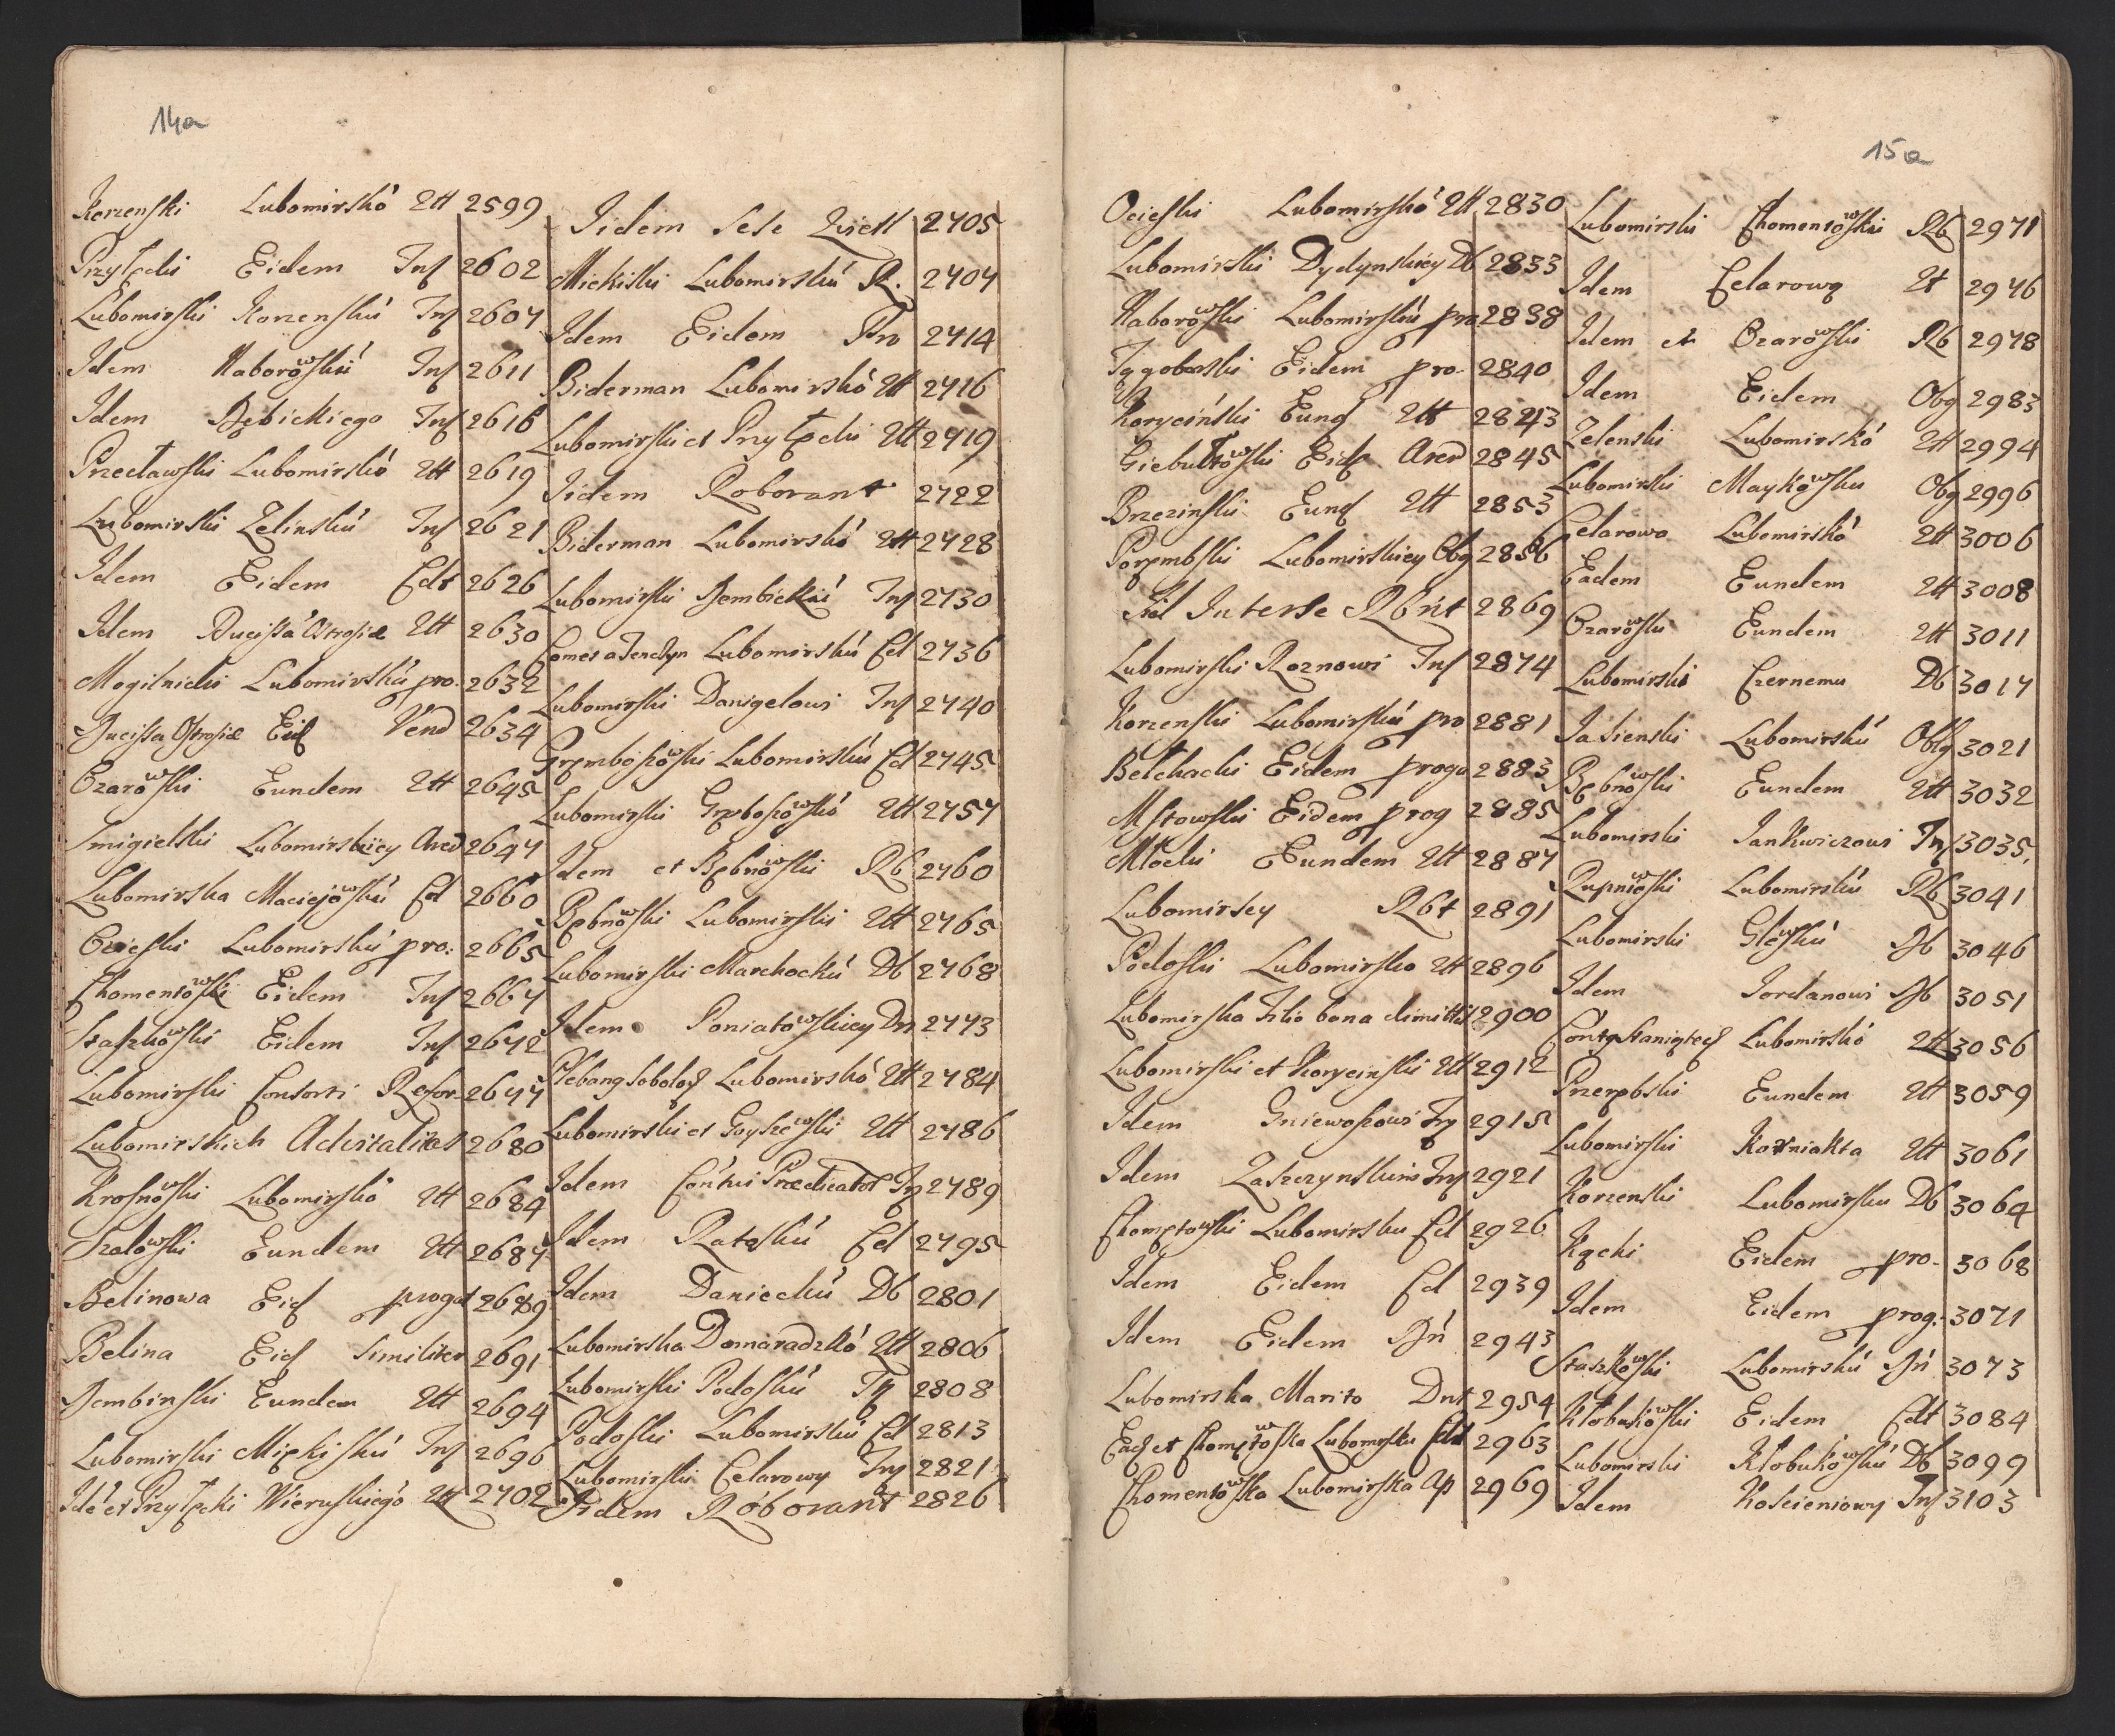 14a
Korzenski Lubomirskó Qtt 2599
Przyłęcki Eidem Ins 2602
Lubomirski Korzenskú Ins 2607
Idem Naborowskú Ins 2611
Idem Dębickiego Ins 2616
Przecławski Lubomirskó Qtt 2619
Lubomirski Zelinskú Ins 2621
Idem Eidem Cdt 2626
Idem Ducissá Ostrosiæ Qtt 2630
Mogilnicki Lubomirskú pro. 2632
Ducissa Ostrosiæ Eid Vend 2634
Ozarowski Eundem Qtt 2645
Smigielski Lubomirskiey Ared 2647
Lubomirska Maciejowskú Cd 2660
Ocieski Lubomirskú pro: 2665
Chomentowski Eidem Ins 2667
Staszkowski Eidem Ins 2672
Lubomirski Consorti Refor. 2677
Lubomirskich Advitalitas 2680
Krosnowski Lubomirskó Qtt 2684
Szalowski Eundem Qtt 2687
Belinowa Eid progat 2689
Belina Eid similiter 2691
Dembinski Eundem Qtt 2694
Lubomirski Miękiskú Ins 2696
Idē et Przyłęcki Wieruskiego Qtt 2702
Iidem Sese Qviett 2705
Miękiski Lubomirskú R. 2707
Idem Eidem Pro 2714
Biderman Lubomirskó Qtt 2716
Lubomirski et Przyłęcki Qtt 2719
Iidem Roborant 2722
Biderman Lubomirskó Qtt 2728
Lubomirski Dembickiú Ins 2730
Comes a Tenczyn Lubomirskú Cd 2736
Lubomirski Danigelowi Ins 2740
Gręmboszowski Lubomirskú Cd 2745
Lubomirski Gręboszowskó Qtt 2757
Idem et Bębnowski Rb 2760
Bębnowski Lubomirski Qtt 2765
Lubomirski Marchockú Db 2768
Idem Poniatowskiey Dn 2773
Pleban9 Sobolos Lubomirskó Qtt 2784
Lubomirski et Goyszewski Qtt 2786
Idem Conv̄tui Prædicator Ins 2789
Idem Ratoskú Cd 2795
Idem Danieckú Db 2801
Lubomirska Domaradzkó Qtt 2806
Lubomirski Podoskú Ins 2808
Podoski Lubomirskú Cd 2813
Lubomirski Celarowy Ins 2821
Iidem Roborant 2826
15a
Ocieski Lubomirskó Qtt 2830
Lubomirski Dydynskiey Db 2833
Naborowski Lubomirskú pro 2838
Tęgoborski Eidem pro. 2840
Koryciński Eund Qtt 2843
Giebułtowski Eid Ared 2845
Brzezinski Eund Qtt 2853
Poręmbski Lubomirskiey Obg 2856
Iid Inter se Rbrn̄t 2869
Lubomirski Roznowi Ins 2874
Korzenski Lubomirskú pro 2881
Bełchacki Eidem proga 2883
Mstowski Eidem prog 2885
Młocki Eundem Qtt 2887
Lubomirscy Rbt 2891
Podoski Lubomirsko Qtt 2896
Lubomirska Filio bona dimittit 2900
Lubomirski et Korycinski Qtt 2912
Idem Gniewoszowi Ins 2915
Idem Zaszczynskim Ins 2921
Chomętowski Lubomirsku Cd 2926
Idem Eidem Cd 2939
Idem Eidem Dn̄ 2943
Lubomirska Marito Dnt 2954
Ead et Chomętowska Lubomirsku Cdt 2963
Chomentowska Lubomirska Ap 2969
Lubomirski Chomentowskú Rb 2971
Idem Celarową Qt 2976
Idem et Ozarowski Rb 2978
Idem Eidem Obg 2983
Zelenski Lubomirskó Qtt 2994
Lubomirski Maykowsku Obg 2996
Celarowa Lubomirskó Qtt 3006
Eadem Eundem Qtt 3008
Ozarowski Eundem Qtt 3011
Lubomirski Czernemu Db 3017
Jasienski Lubomirskú Oblg 3021
Bębnowski Eundem Qtt 3032
Lubomirski Jankwiczowi Ins 3035.
Rupniowski Lubomirskú Rb 3041
Lubomirski Glewskú Db 3046
Idem Jordanowi Db 3051
Conv̄t9 Staniątecs Lubomirskó Qtt 3056
Przerębski Eundem Qtt 3059
Lubomirski Korniakta Qtt 3061
Korzenski Lubomirsku Db 3064
Kącki Eidem pro. 3068
Idem Eidem prog. 3071
Staszkowski Lubomirskú Dn̄ 3073
Kłobukowski Eidem Cdt 3084
Lubomirski Kłobukowskú Db 3099
Idem Koscieniowy Ins 3103